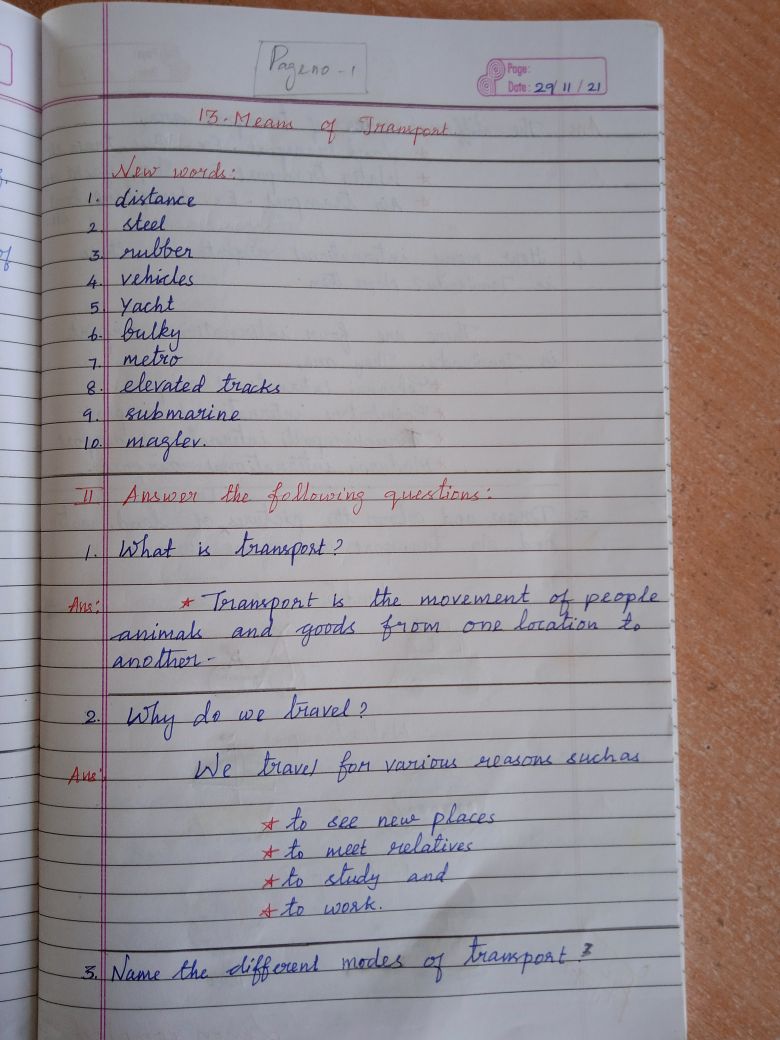 Pageno - 1
Page:
Date: 29/11/21
13. Means of Transport
New words:
1. distance
2. steel
3. rubber
4. vehicles
5. Yacht
6. bulky
7. metro
8. elevated tracks
9. submarine
10. maglev.
II Answer the following questions:
1. What is transport?
Ans: * Transport is the movement of people
animals and goods from one location to
another-
2. Why do we travel?
Ans: We travel for various reasons such as
* to see new places
* to meet relatives
* to study and
* to work.
3. Name the different modes of transport?
of